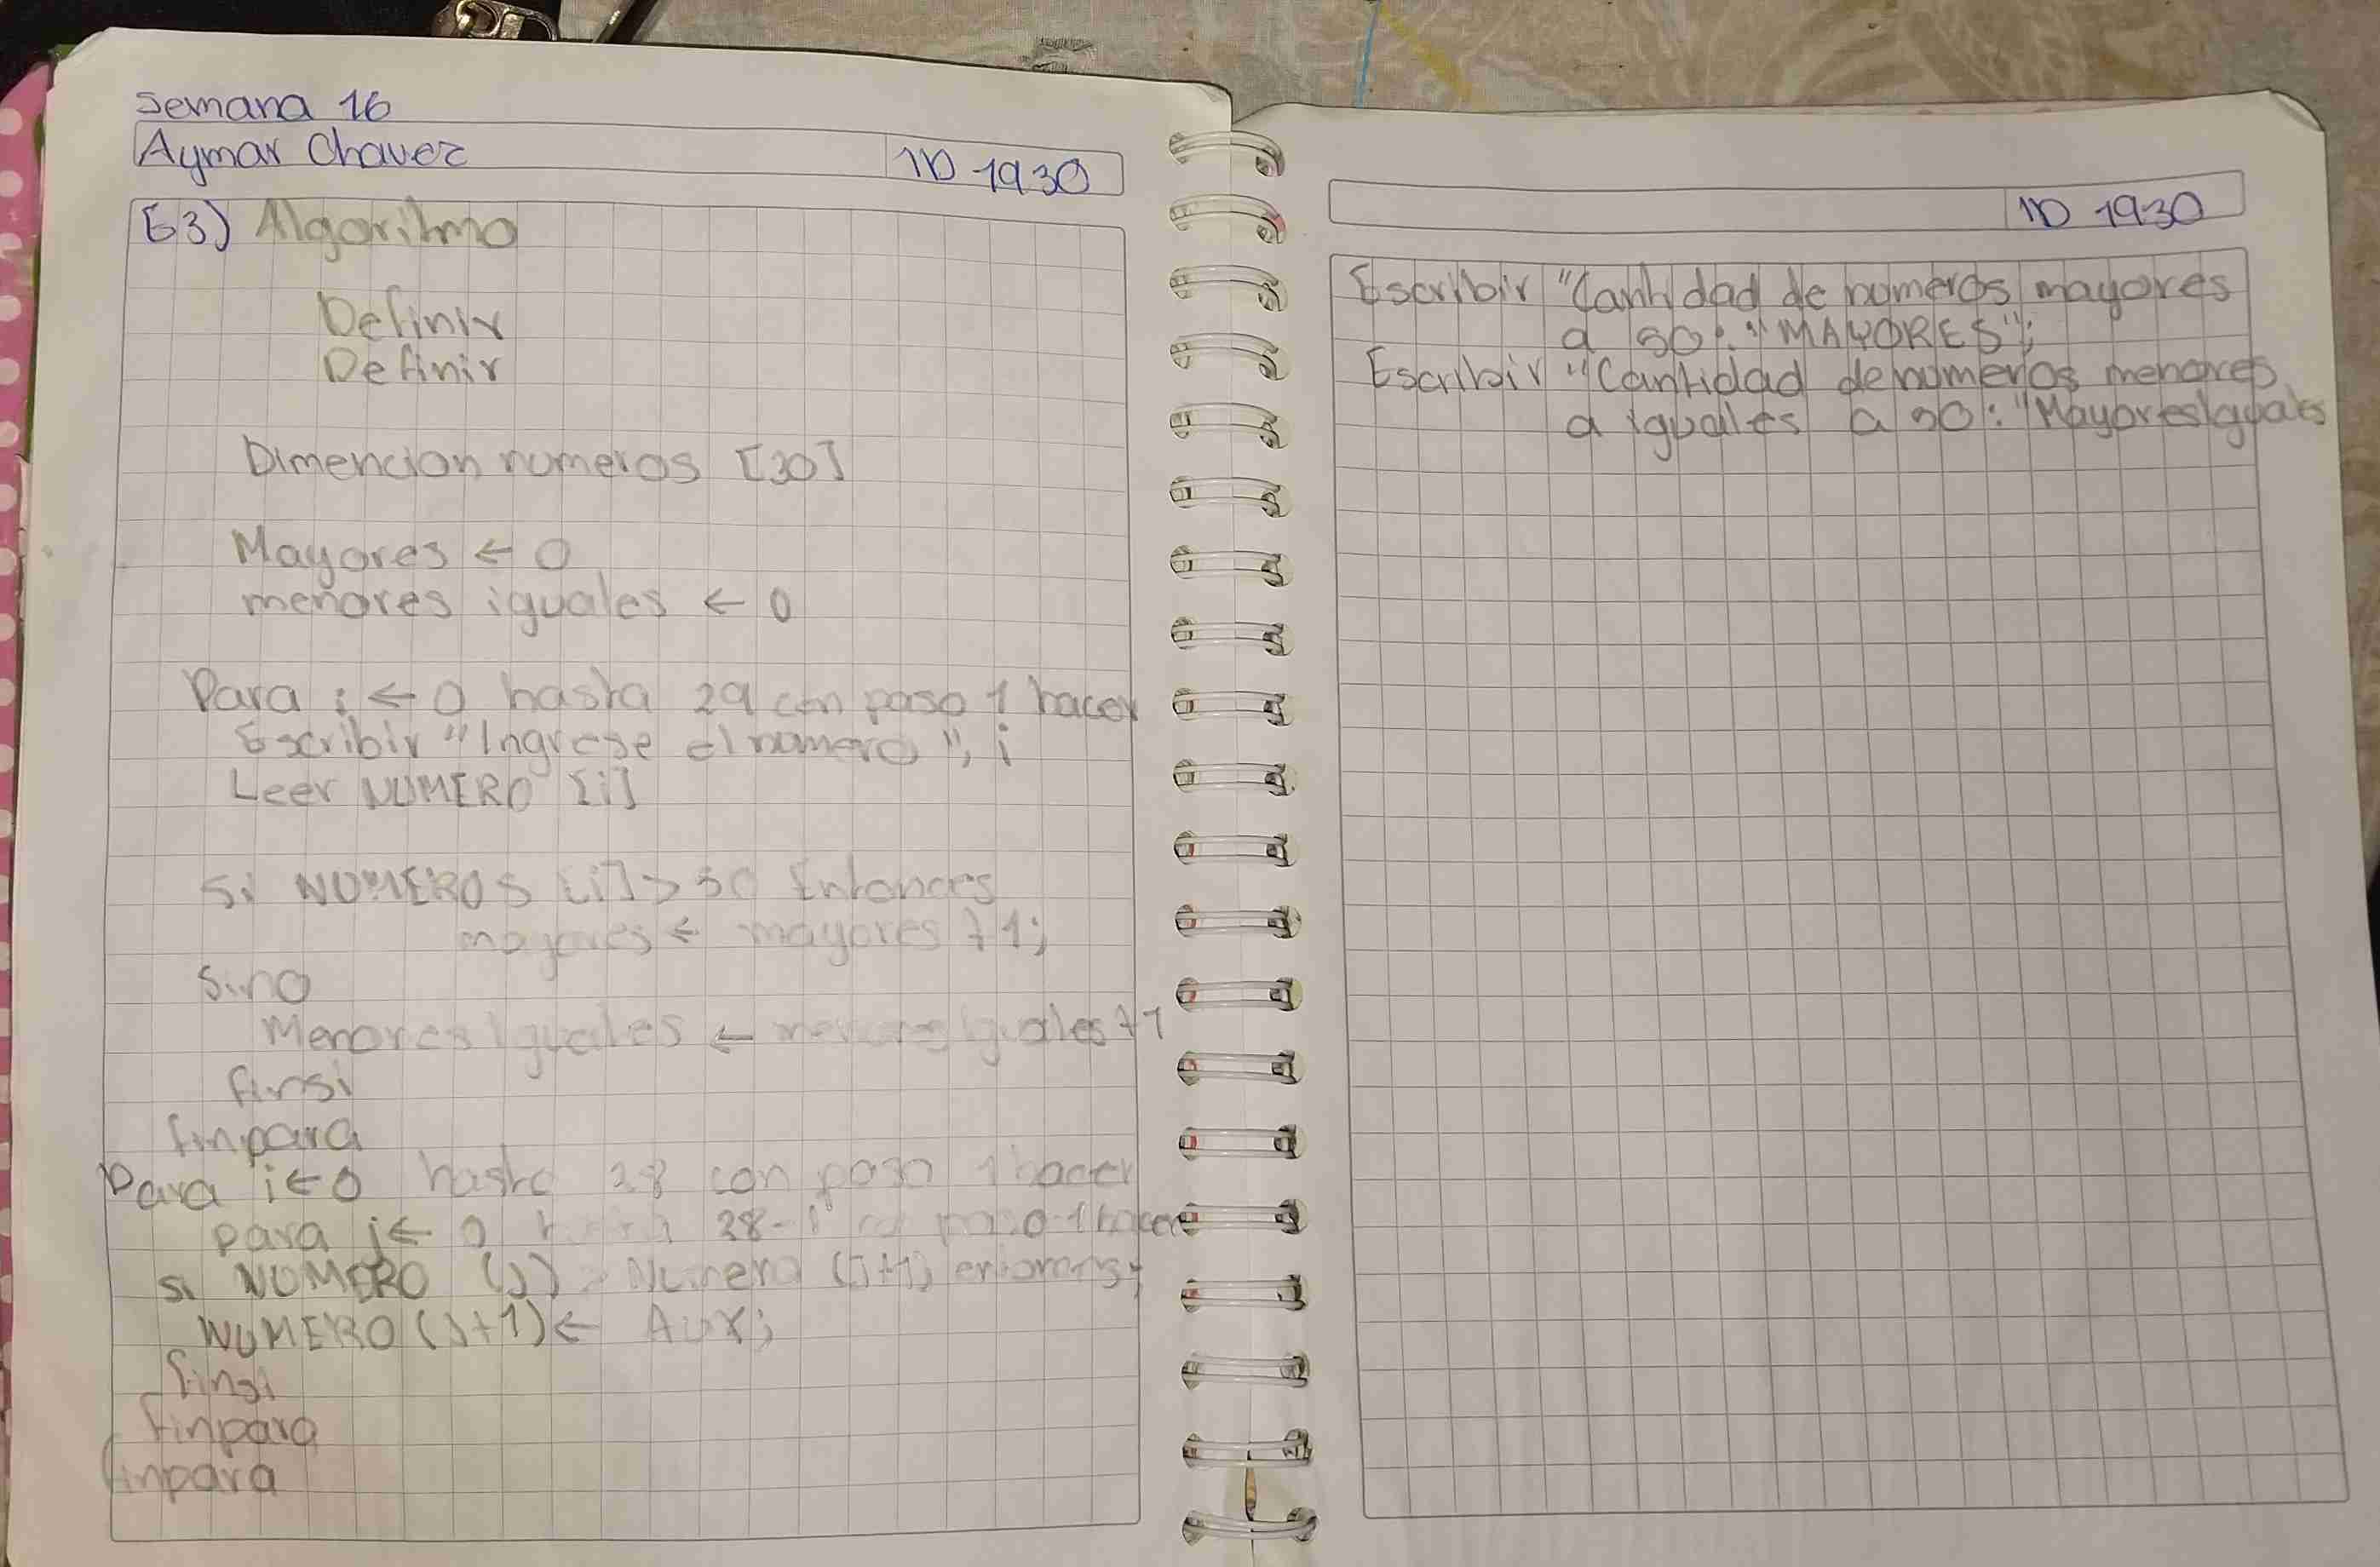 Semana 16
Aymar Chavez
ND 1930
E3) Algoritmo
Definir
Definir
Dimencion numeros [30]
Mayores ← 0
menores iguales ← 0
Para i ← 0 hasta 29 con paso 1 hacer
Escribir "Ingrese el numero", i
Leer NUMERO [i]
Si NUMEROS [i] > 50 Entonces
mayores ← mayores + 1;
Sino
Menores Iguales ← menores Iguales + 1
finsi
finpara
Para i ← 0 hasta 28 con paso 1 hacer
para j ← 0 hasta 28 - i con paso 1 hacer
si NUMERO (J) > Numero (J+1) entonces;
NUMERO (J+1) ← Aux;
finsi
finpara
finpara
ND 1930
Escribir "Cantidad de numeros mayores
a 50: "MAYORES";
Escribir "Cantidad de numeros menores
a iguales a 50: "MayoresIguales